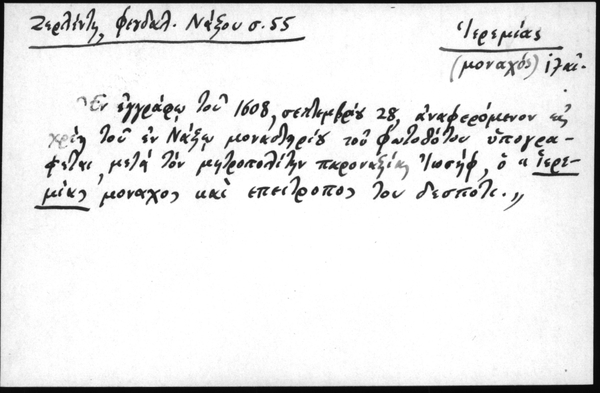 Ζερλέντη, φεουδαλ. Νάξου σ. 55
Ἱερεμίας
(μοναχός)
Ἐν ἐγγράφῳ τοῦ 1608, σεπτεμβρίου 28, ἀναφερόμενον εἰς
χρέη τοῦ ἐν Νάξῳ μοναστηρίου τοῦ φωτοδότου ὑπογρα-
φεται, μετά τόν μητροπολίτην παροναξίας Ἰωσήφ, ὁ « ἱερε-
μίας μοναχος καὶ επειτροπος του δεσποτι.»